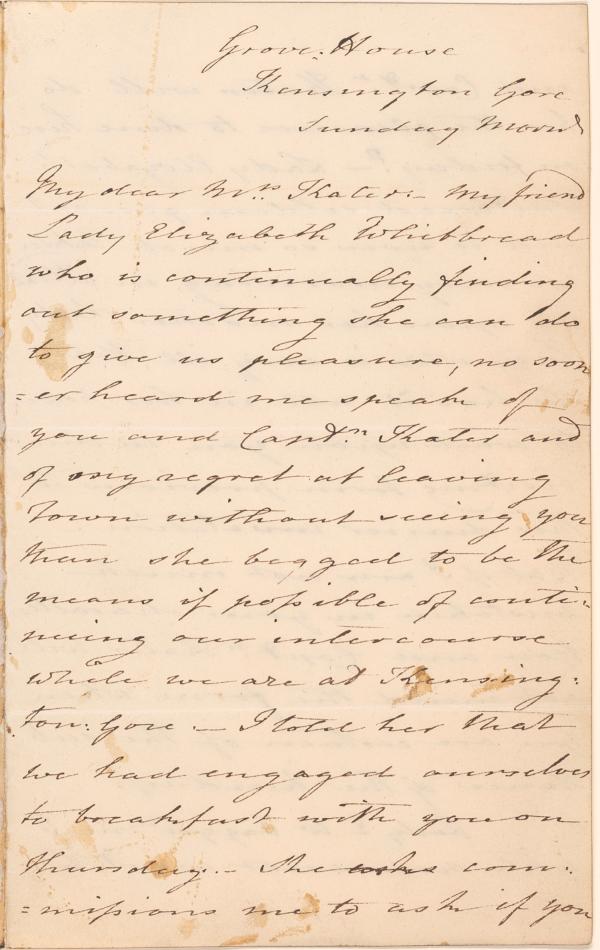 Grove House
Kensington Gore
Sunday Morn.g
My dear Mrs. Kater:- My friend
Lady Elizabeth Whitbread
who is continually finding
out something she can do
to give us pleasure, no soon
=er heard me speak of
you and Capt.n Kater and
of my regret at leaving
Town without seeing you
than she begged to be the
means if possible of conti-
nuing our intercourse
while we are at Kensing:
ton: Gore.- I told her that
we had engaged ourselves
to breakfast with you on
Thursday.- She asks com:
=missions me to ask if you